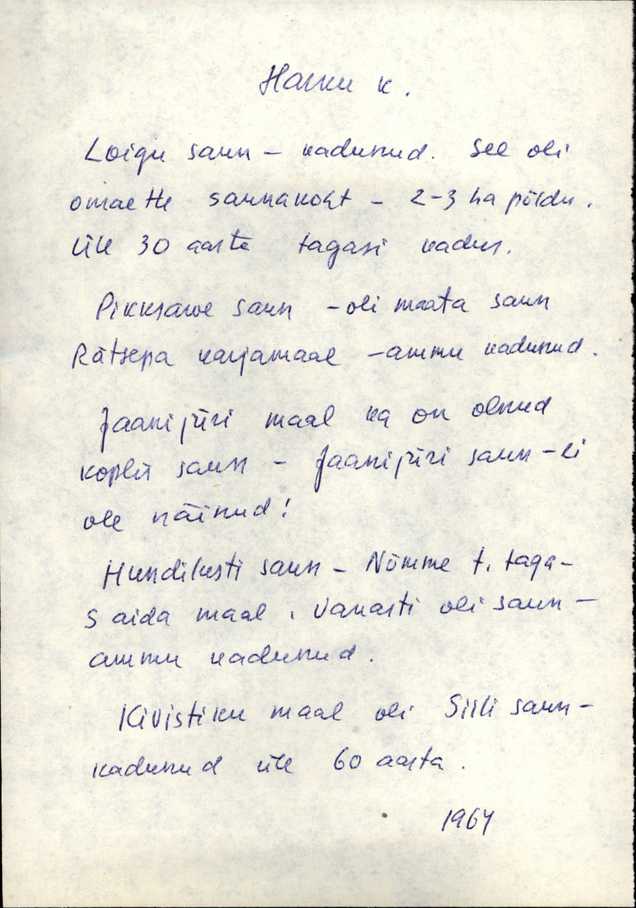 Harku k.
Loigu saun – kadunud. See oli
omaette saunakoht – 2-3 ha põldu.
Üle 30 aasta tagasi kadus.
Pikksawe saun – oli maata saun
Rätsepa karjamaal – ammu kadunud.
Jaanijüri maal ka on olnud
koplis saun – Jaanijüri saun – ei
ole näinud!
Hundikusti saun – Nõmme t. taga –
Saida maal. Vanasti oli saun –
ammu kadunud.
Kivistiku maal oli Siili saun –
kadunud üle 60 aasta.
1964